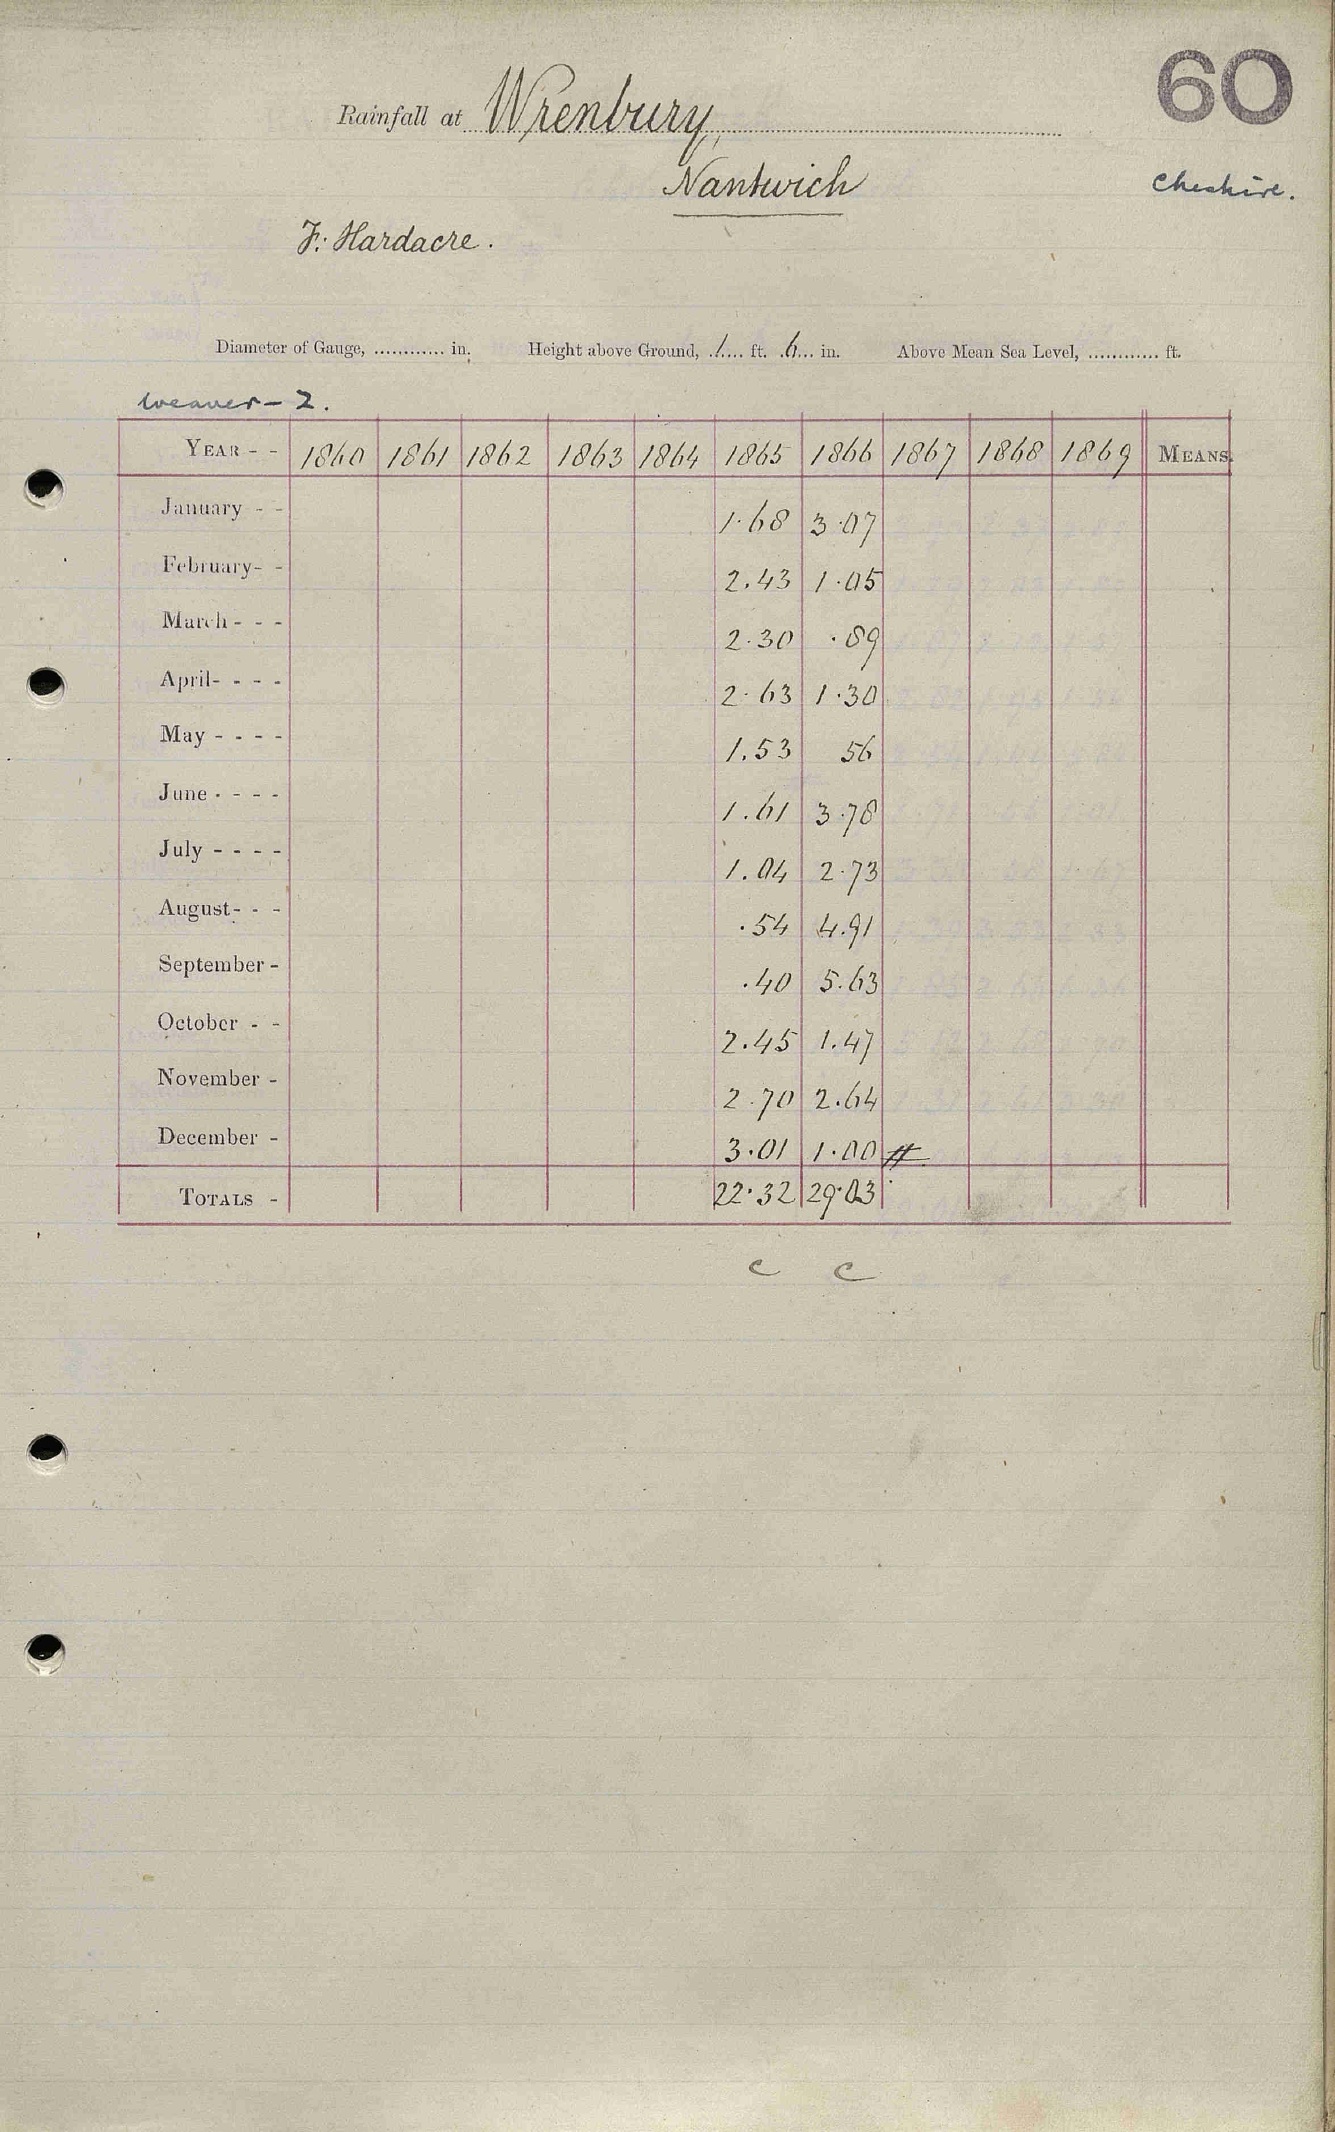 60
Rainfall at Wrenbury,
Nantwich
Cheshire.
F. Hardacre.
Diameter of Gauge, ............ in. Height above Ground, 1 ft. 6 in. Above Mean Sea Level, ............ ft.
Weaver - 2.
YEAR - - 1860 1861 1862 1863 1864 1865 1866 1867 1868 1869 MEANS.
January - - 1.68 3.07
February - - 2.43 1.05
March - - - 2.30 .89
April - - - - 2.63 1.30
May - - - - 1.53 56
June - - - - 1.61 3.78
July - - - - 1.04 2.73
August - - - .54 4.91
September - .40 5.63
October - - 2.45 1.47
November - 2.70 2.64
December - 3.01 1.00 #
TOTALS - 22.32 29.03
c c